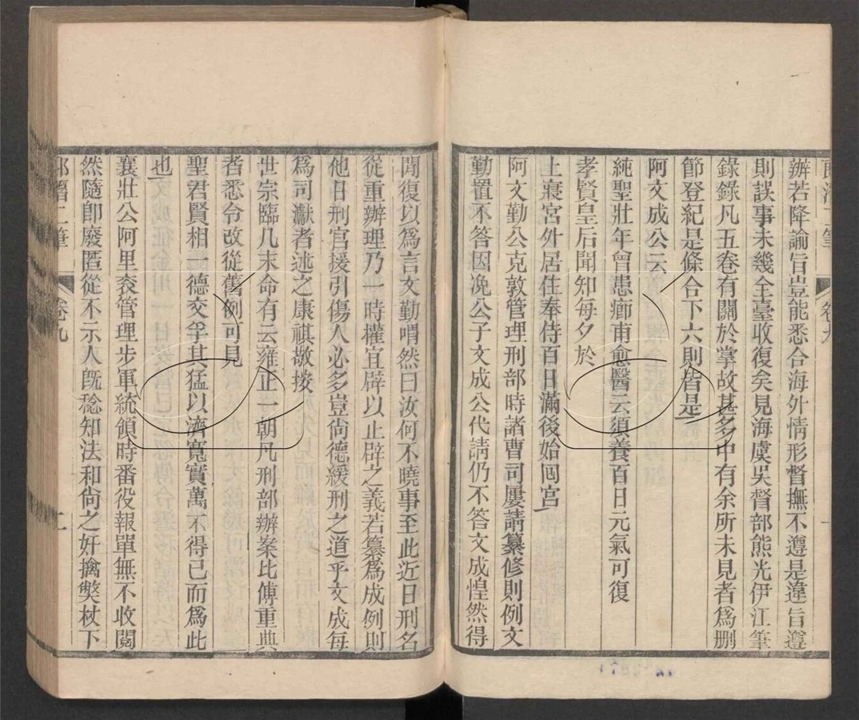 辦若降諭旨豈能悉合海外情形督撫不遵是違旨遵
則誤事未幾全臺收復矣見海虞吳督部熊光伊江筆
錄錄凡五卷有關於掌故甚多中有余所未見者爲刪
節登紀是條合下六則皆是
阿文成公云
純聖壯年曾患癤甫愈醫云須養百日元氣可復
孝賢皇后聞知每夕於
上寢宮外居住奉侍百日滿後始回宮
阿文勤公克敦管理刑部時諸曹司屢請纂修則例文
勤置不答因浼公子文成公代請仍不答文成惶然得
閒復以爲言文勤喟然曰汝何不曉事至此近日刑名
從重辦理乃一時權宜辟以止辟之義若纂爲成例則
他日刑官援引傷人必多豈尚德緩刑之道乎文成每
爲司讞者述之康祺敬按
世宗臨几末命有云雍正一朝凡刑部辦案比傅重典
者悉令改從舊例可見
聖君賢相一德交孚其猛以濟寬實萬不得已而爲此
也
襄壯公阿里袞管理步軍統領時番役報單無不收閱
然隨卽廢匿從不示人旣稔知法和尚之奸擒斃杖下
二筆
卷九
二